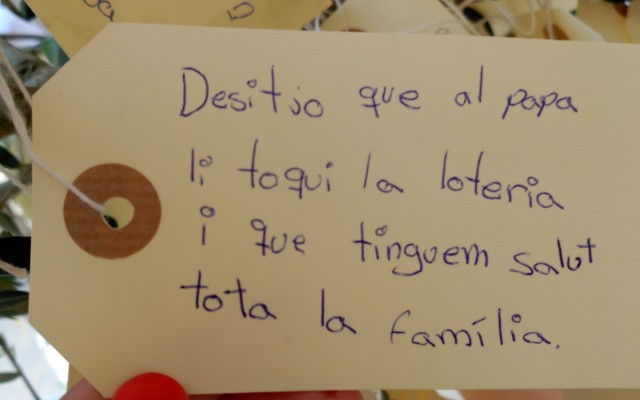 Desitjo que al papa
li toqui la loteria
i que tinguem salut
tota la família.